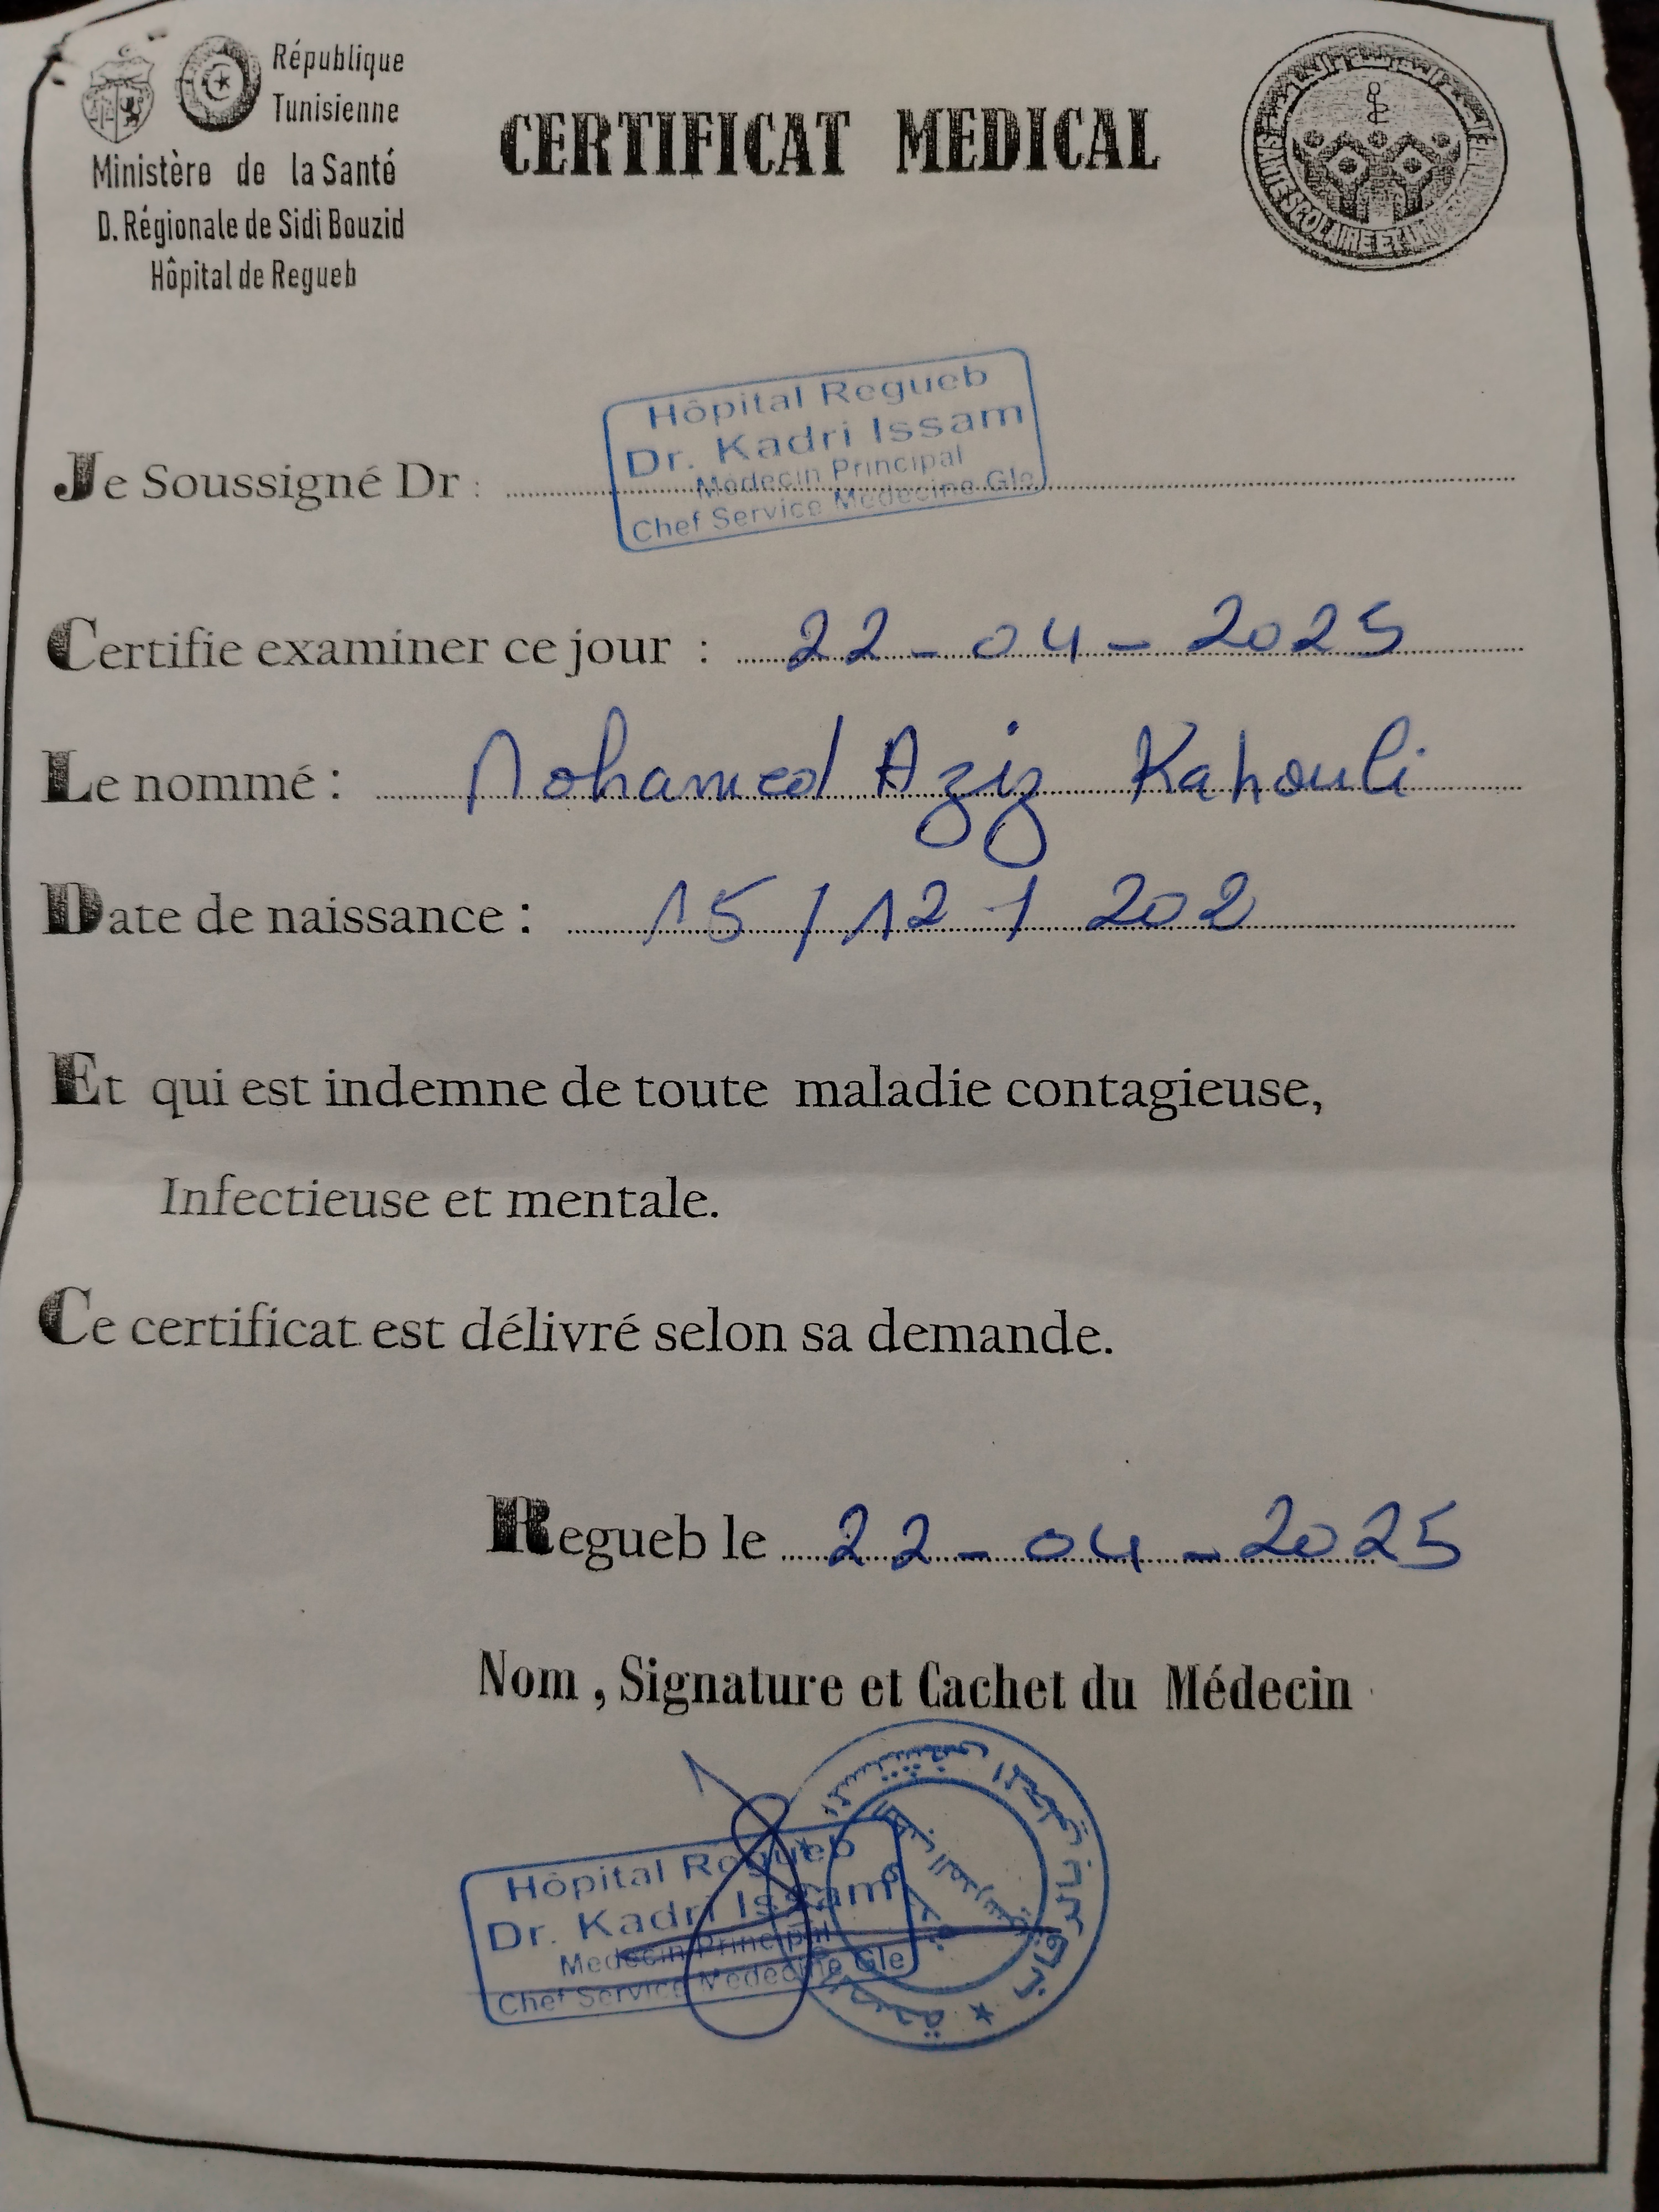 République
Tunisienne
Ministère de la Santé
D. Régionale de Sidi Bouzid
Hôpital de Regueb
CERTIFICAT MEDICAL
SANTE SCOLAIRE ET UNIVERSITAIRE
Hôpital Regueb
Dr. Kadri Issam
Médecin Principal
Chef Service Médecine Gle
Je Soussigné Dr :
Certifie examiner ce jour : 22-04-2025
Le nommé : Mohamed Aziz Kahouli
Date de naissance : 15/12/202
Et qui est indemne de toute maladie contagieuse,
Infectieuse et mentale.
Ce certificat est délivré selon sa demande.
Regueb le 22-04-2025
Nom , Signature et Cachet du Médecin
Hôpital Regueb
Dr. Kadri Issam
Medecin Principal
Chef Service Medecine Gle